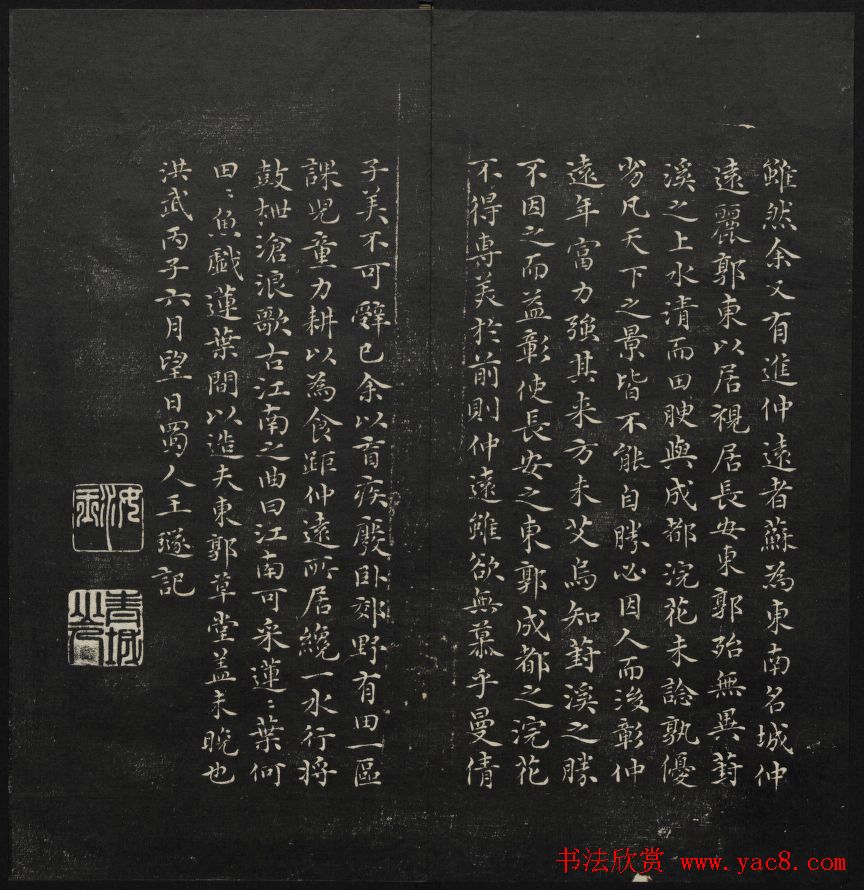 雖然余又有進仲遠者蘇為東南名城仲
遠麗郭東以居視居長安東郭殆無異葑
溪之上水清而田腴與成都浣花未諗孰優
劣凡天下之景皆不能自勝必因人而後彰仲
遠年富力強其来方未艾烏知葑溪之勝
不因之而益彰使長安之東郭成都之浣花
不得專美於前則仲遠雖欲無慕乎曼倩
子美不可辭已余以盲疾廢卧郊野有田一區
課児童力耕以為食距仲遠所居纔一水行将
鼓枻滄浪歌古江南之曲曰江南可采蓮蓮葉何
田田魚戲蓮葉間以造夫東郭草堂蓋未晚也
洪武丙子六月望日蜀人王璲記
青城山
书法欣赏 www.yac8.com